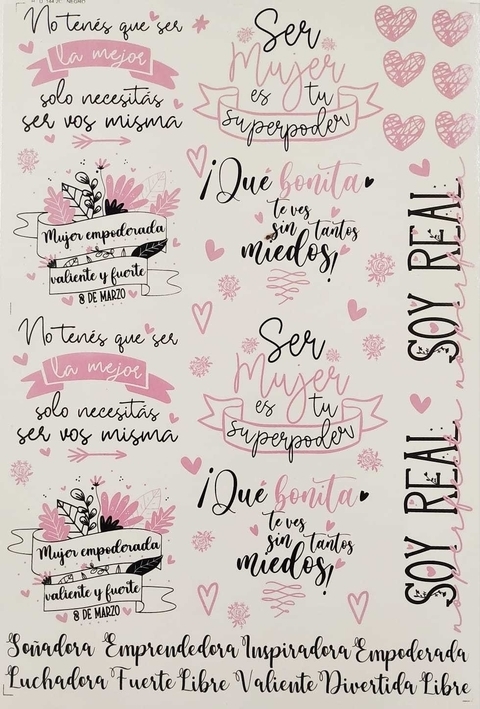 No tenés que ser
la mejor
solo necesitás
ser vos misma
Ser
Mujer
es tu
superpoder
Mujer empoderada
valiente y fuerte
8 DE MARZO
¡Qué bonita
te ves
sin tantos
miedos!
SOY REAL
no perfecta
No tenés que ser
la mejor
solo necesitás
ser vos misma
Ser
Mujer
es tu
superpoder
Mujer empoderada
valiente y fuerte
8 DE MARZO
¡Qué bonita
te ves
sin tantos
miedos!
SOY REAL
no perfecta
Soñadora Emprendedora Inspiradora Empoderada
Luchadora Fuerte Libre Valiente Divertida Libre